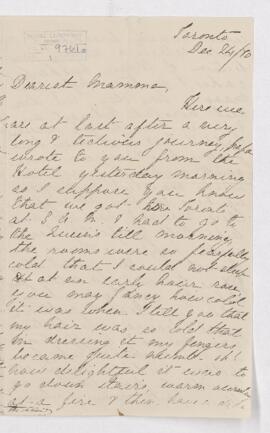 Toronto
Dec 24/80
Dearest Mamma,
Here we
are at last after a very
long & tedious journey, Papa
wrote to you from the
Hotel yesterday morning
so I suppose you know
that we got to Toronto
at 5 A M I had to go to
the Queen's till morning,
the rooms were so fearfully
cold that I could not sleep
at an early hour rose
you may fancy how cold
it was when I tell you that
my hair was so cold that
in dressing it my fingers
became quite numb oh!
how delightful it was to
go down stairs, warm ourselves
at a fire & then have